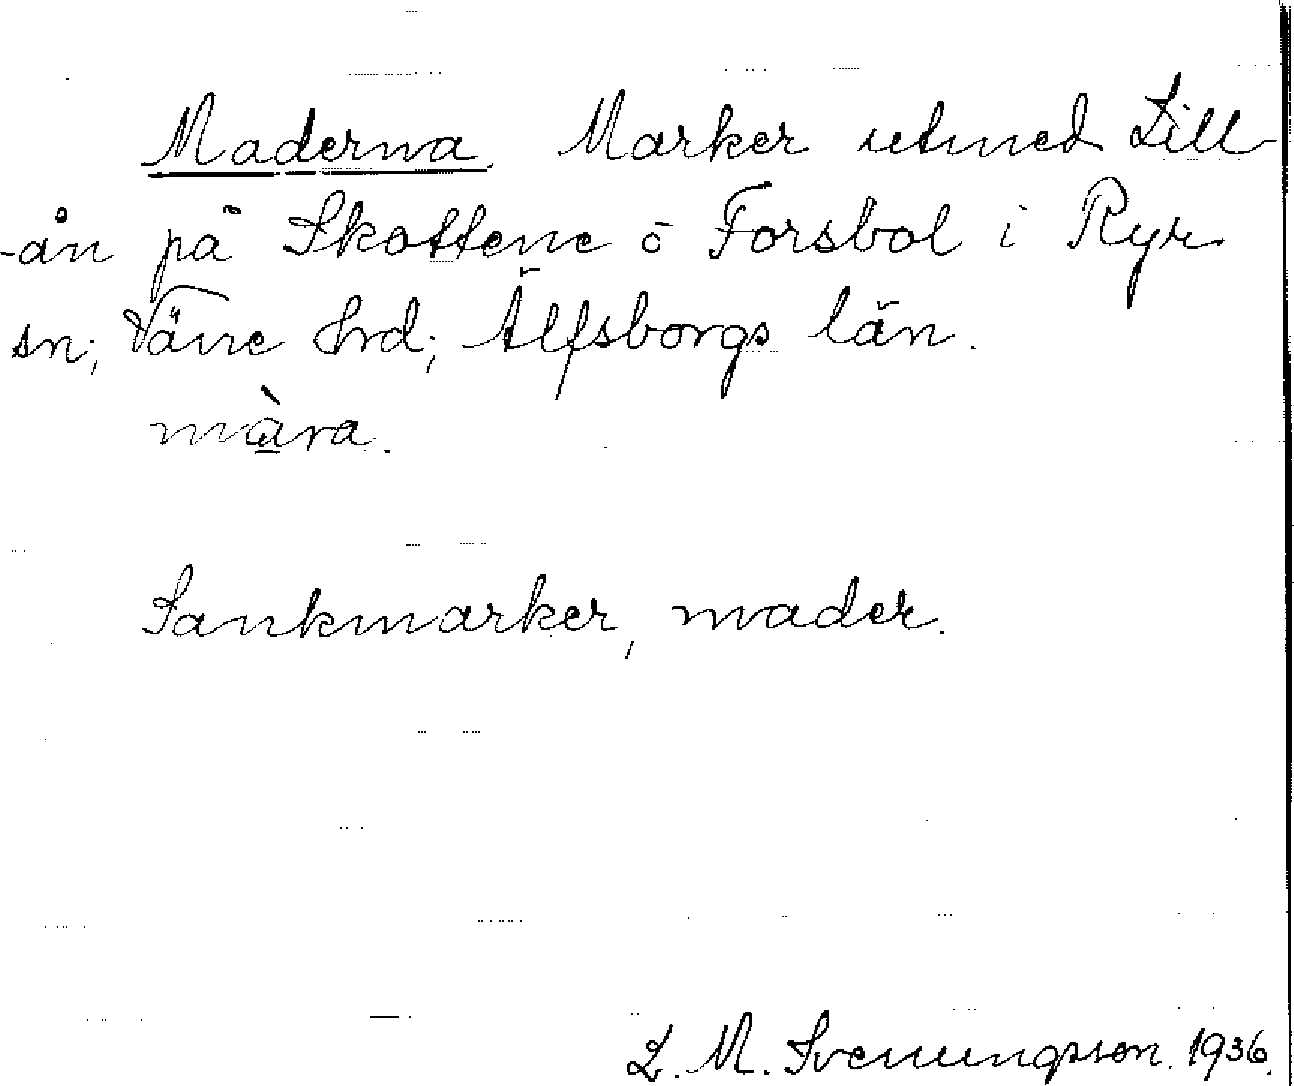 Maderna. Marker utmed Lill-
-ån på Skottene o Forsbol i Ryr
sn; Väne hrd; Älfsborgs län.
màra.
Sankmarker, mader.
L. M. Svenungsson. 1936.